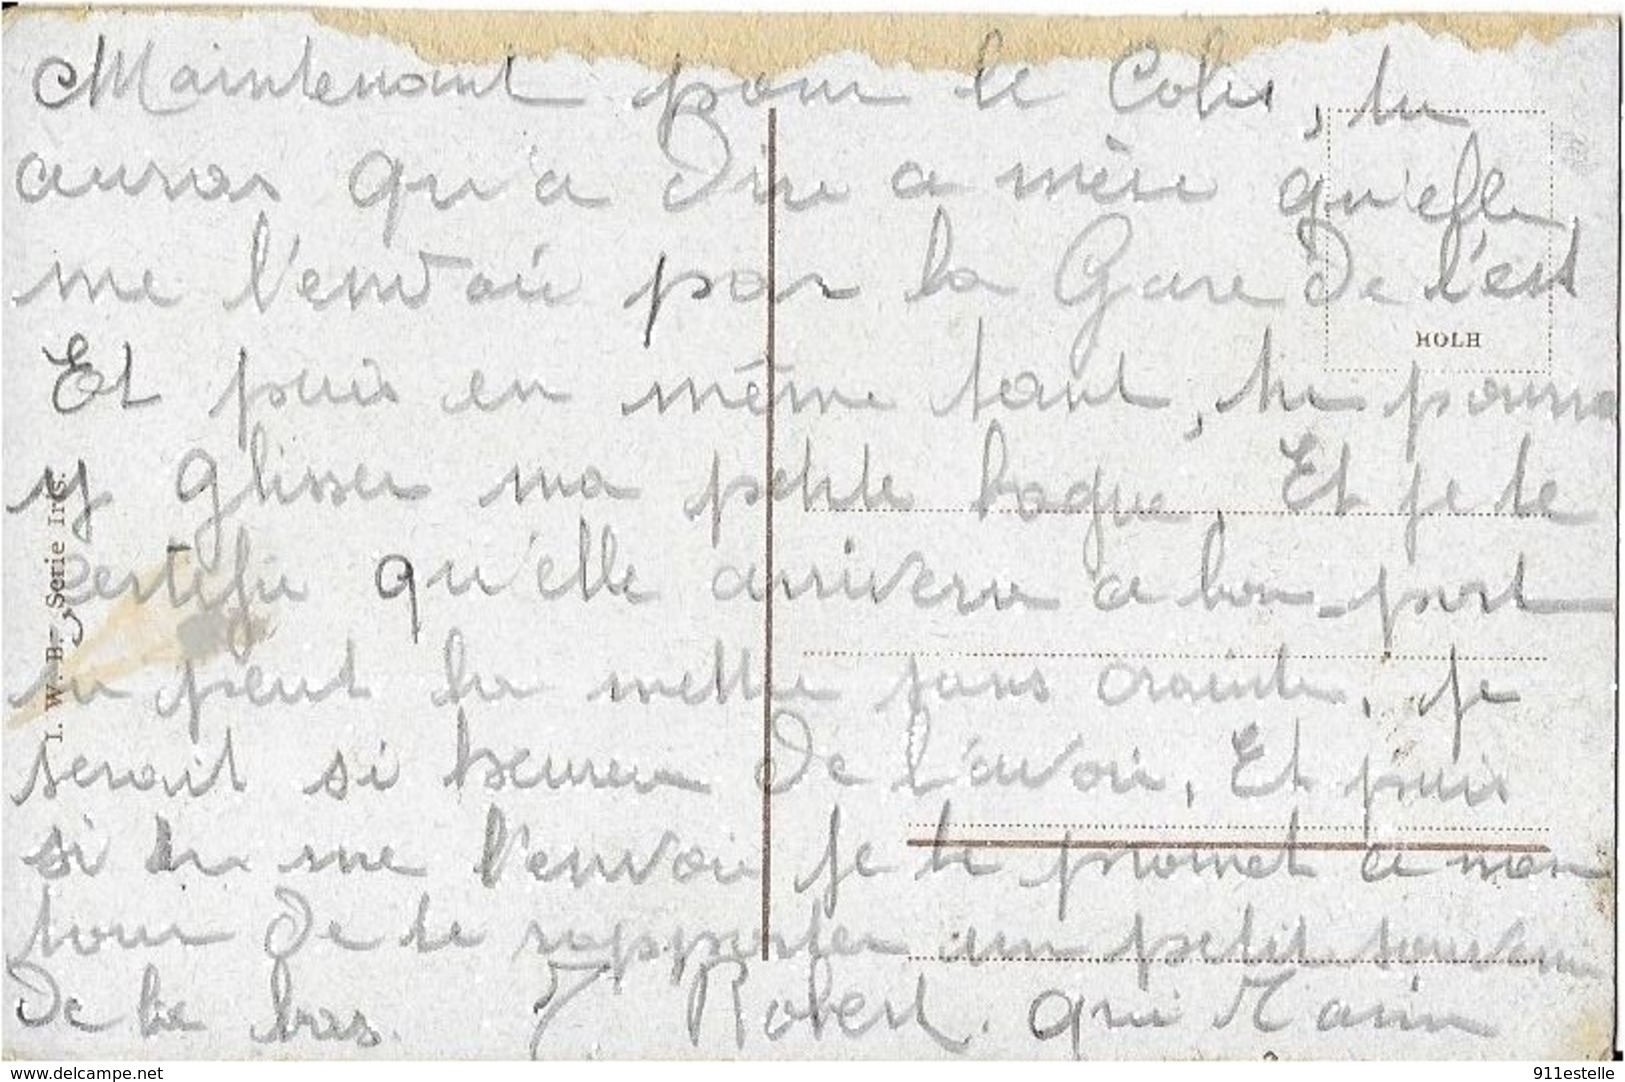 Maintenant pour le Colis, tu
auras qu'a dire a mère qu'elle
me l'envoie par la Gare de l'est
HOLH
Et puis en même tant, tu pourra
y glisser ma petite bague. Et je te
certifie qu'elle arrivera a bon-port
tu peut la mettre sans crainte, je
serait si heureu de l'avoir, Et puis
si tu me l'envoie je te promet a mon
tour de te rapporter un petit souvenir
de la bas. T Robert. qui T'aim
I. W. B. Serie Irrs.
delcampe.net
911estelle